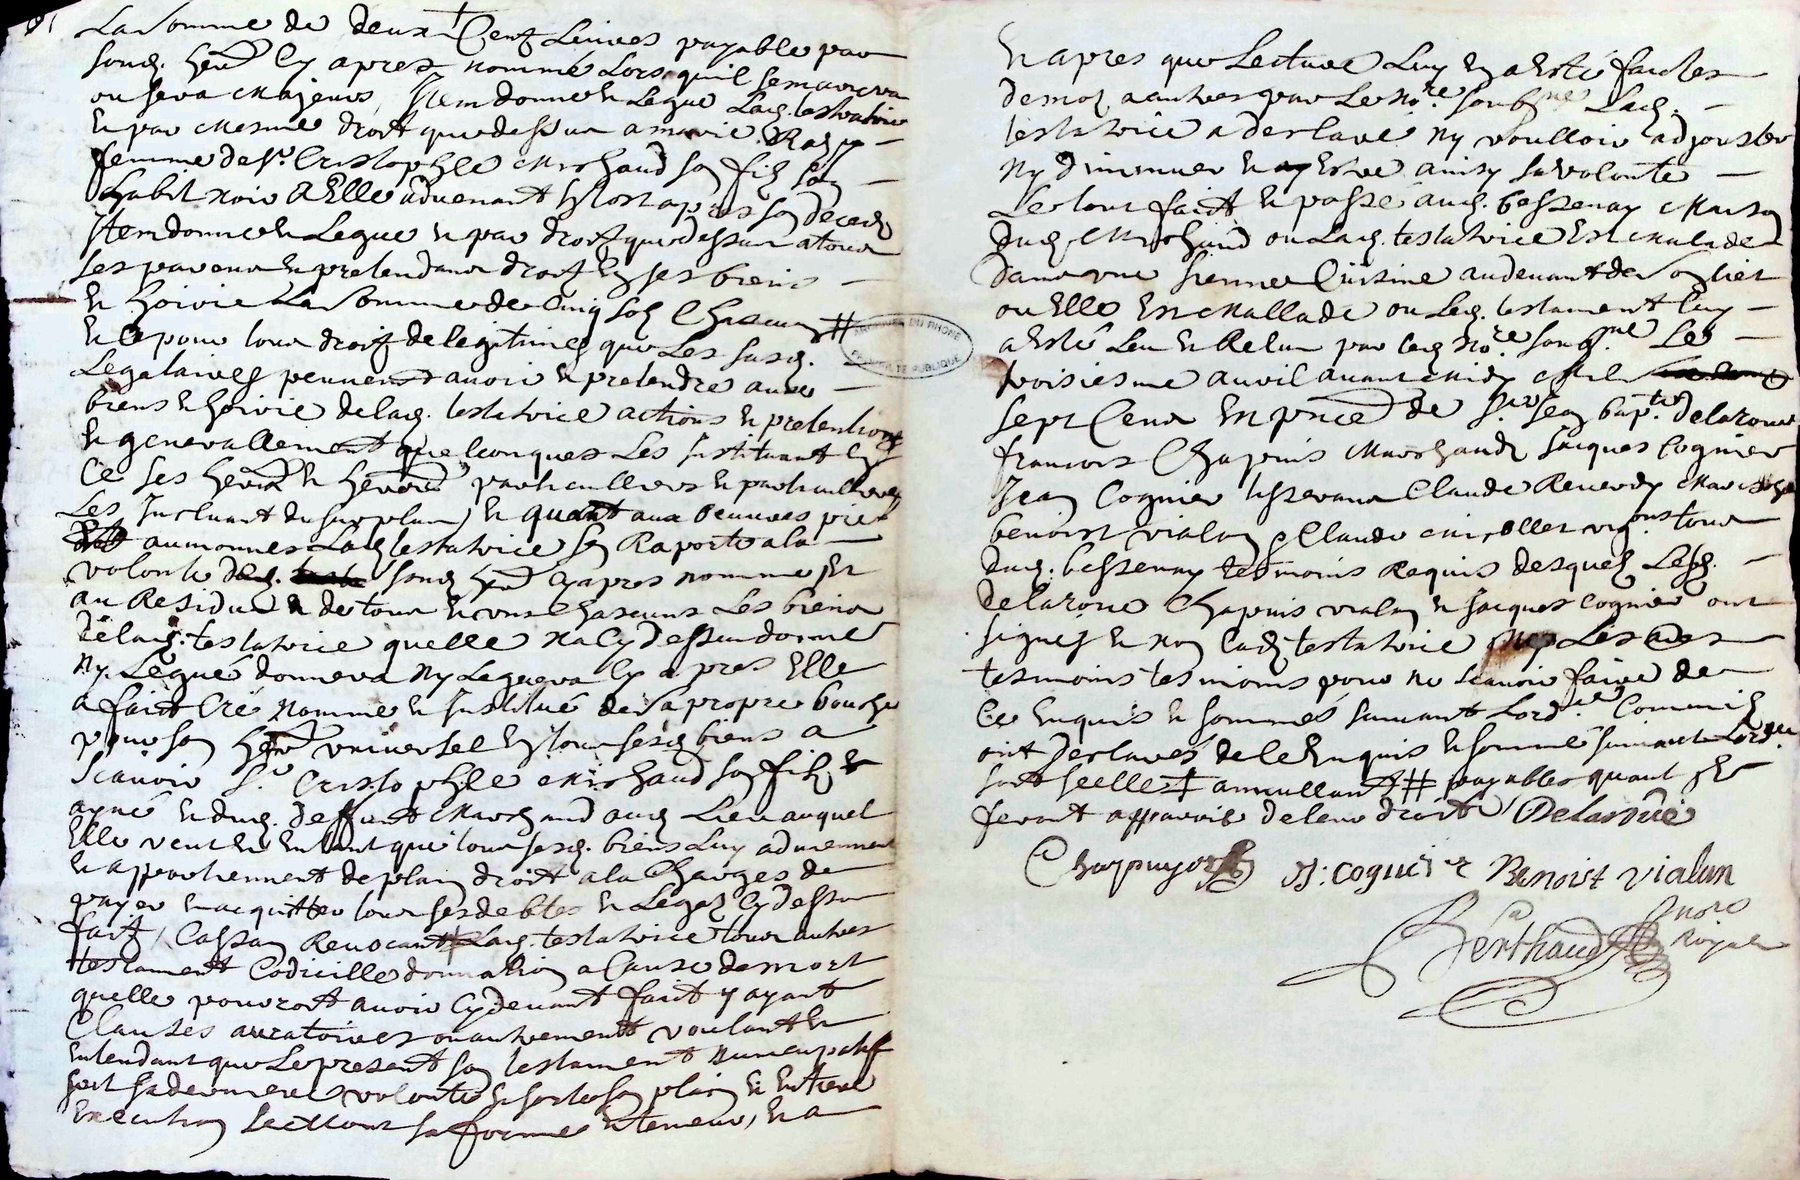 La somme de deux + Cent Livres payable par
sond. herr Cy apres nommé Lors quil se mariera
ou sera Majeur, Item donne & Legue Lad. testatrice
& par mesme droit que dessus a marie
femme de Sr. Cristophle Michaud son fils son
habit noir a Elle advenant tost apres son deced
Item donne & Legue & par droit que dessus a tous
Les parens & pretendans droit En ses biens
& hoirie La somme de Cinq sols Chascun #
& ce pour tous droits de legitimes que Les susd.
Legataires peuvent avoir & pretendre aux
biens & hoirie de lad. testatrice actions & pretentions
& generallement quelconques Les Instituant
Ce ses herrs & herres particulliers & particullieres
Les Excluant du surplus, & quant aux oeuvres pies
aumonnes Lad testatrice sen Raporte a la
volonté sond herr Cy apres nomme Et
au Residu & de tous & uns Chascuns Les biens
de lad. testatrice quelle na Cy dessus donné
Ny Legué donnera Ny Leguera Cy apres Elle
a faict Cré Nommé & Institué de sa propre bouche
pour son herr universel En tous sesd biens a
Scavoir Sr Cristophle Michaud son fils &
ayné & dud. deffunt Marchand aud Lieu auquel
Elle veut & Entant que tous sesd. biens Luy adviennent
& appartiennent de plain droit a la Charges de
payer & acquitter tous ses debtes & Legats Cy dessus
faits, Cassan Revocant Lad. testatrice tous autres
testament Codicille donnation a Cause de mort
quelle pourroit avoir Cy devant fait y ayant
Clauses ou autrement voulant &
Entendant que Le present son testament nuncupatif
soit sa derniere volonté & sorte son plain & Entiere
Execution sellon sa forme & teneur, & a
& apres que Lecture Luy En a Esté faictes
de mot a autres par Le nore soubsne Lad.
testatrice a desclaré Ny voulloir adjouster
Ny diminuer & Estre ainsy sa volonte
Le tout faict & passé aud. bessenay Maison
dud Michaud ou Lad. testatrice Est Malade
dans une sienne Cuisine au devant de son liet
ou Elle Est Mallade ou Led. testament Luy
a Esté Leu & Releu par led nore soubsne Les
troisiesme avril avant midy Mil
sept Cens En pnce de Sr Jean bapte Delaroue
francois Chapuis Marchands Jacques Cognier
Jean Cognier tisserans Claude Reverdy
benoist vialon & Claude vignerons tous
dud. bessenay tesmoins Requis desquels Lesd.
Delaroue Chapuis vialon & Jacques Cognier ont
signés & non Lad testatrice Les autres
tesmoins tesmoins pour ne Scavoir faire de
Ce Enquis & sommés suivant Lordce Comme ils
ont desclarés de ce Enquis & sommé suivant Lordce
soit scellé + annullant # payables quant Ils
feront apparoir de leur droit Delaroue
Chappuyos J: cognier Benoist vialon
Berthaud nore
Royal
ARCHIVES DU RHONE
PROPRIETE PUBLIQUE